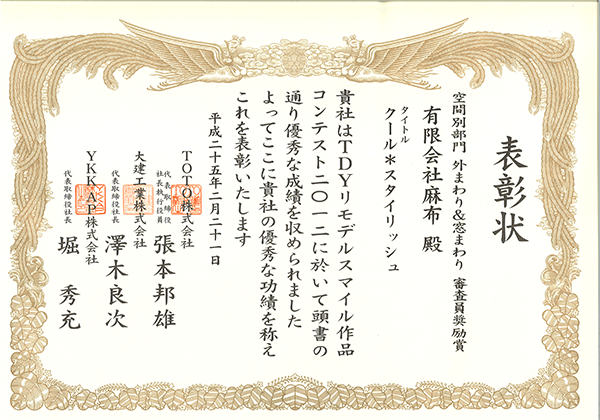 表彰状
空間別部門 外まわり&窓まわり 審査員奨励賞
有限会社麻布 殿
タイトル
クール＊スタイリッシュ
貴社はTDYリモデルスマイル作品
コンテスト二〇一二に於いて頭書の
通り優秀な成績を収められました
よってここに貴社の優秀な功績を称え
これを表彰いたします
平成二十五年二月二十一日
TOTO株式会社
代表取締役
社長執行役員
張本邦雄
大建工業株式会社
代表取締役社長
澤木良次
YKK AP株式会社
代表取締役社長
堀 秀充